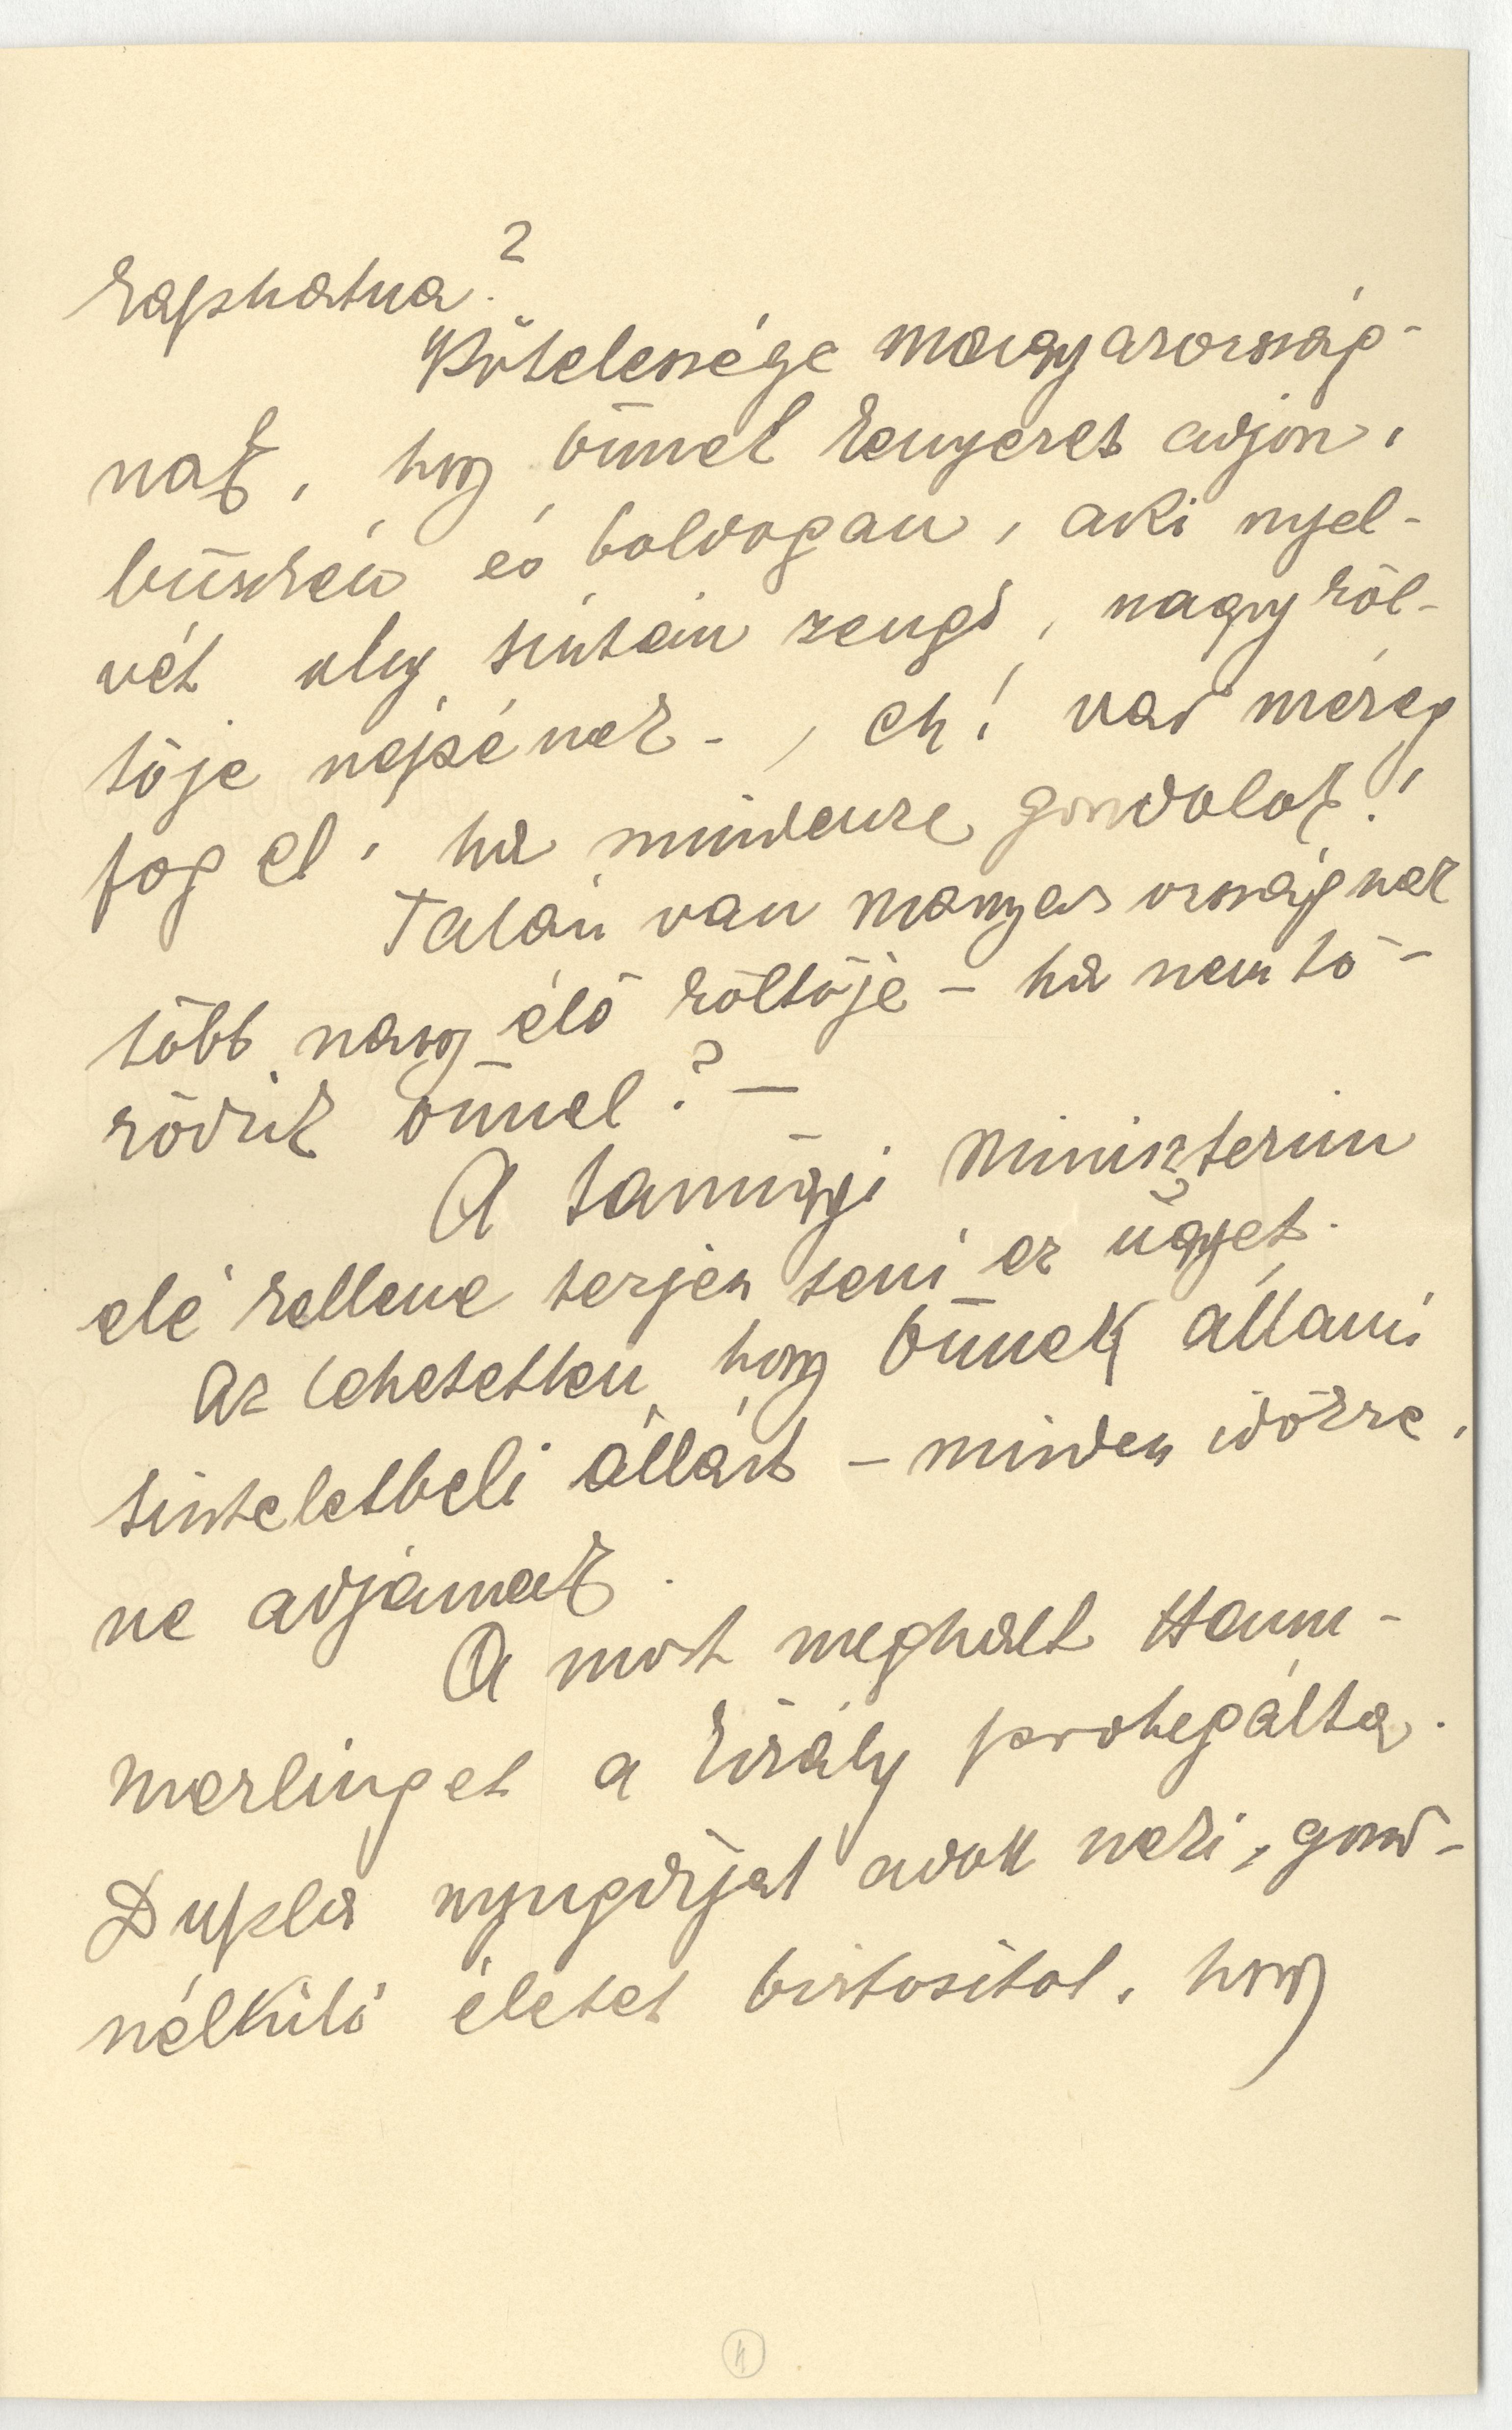 kaphatna?
Kötelessége magyarország-
nak, hogy önnek kenyeret adjon,
büszkén és boldogan, aki nyel-
vét oly tisztán zengi, nagy köl-
tője népének -, eh! vad méreg
fog el, ha mindenre gondolok!
Talán van magyarországnak
több nagy élő költője - ha nem tö-
rődik önnel? -
A tanügyi miniszterium
elé kellene terjeszteni ez ügyet.
Az lehetetlen, hogy önnek állami
tiszteletbeli állást - minden időkre,
ne adjanak.
A most meghalt Ham-
merlinget a király protegálta.
Dupla nyugdijat adott neki, gond-
nélküli életet biztositot, hogy
4